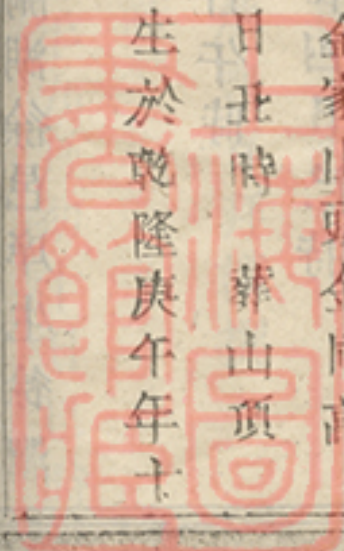 日丑時 葬山頂
生於乾隆庚午年十
上海圖
書館藏